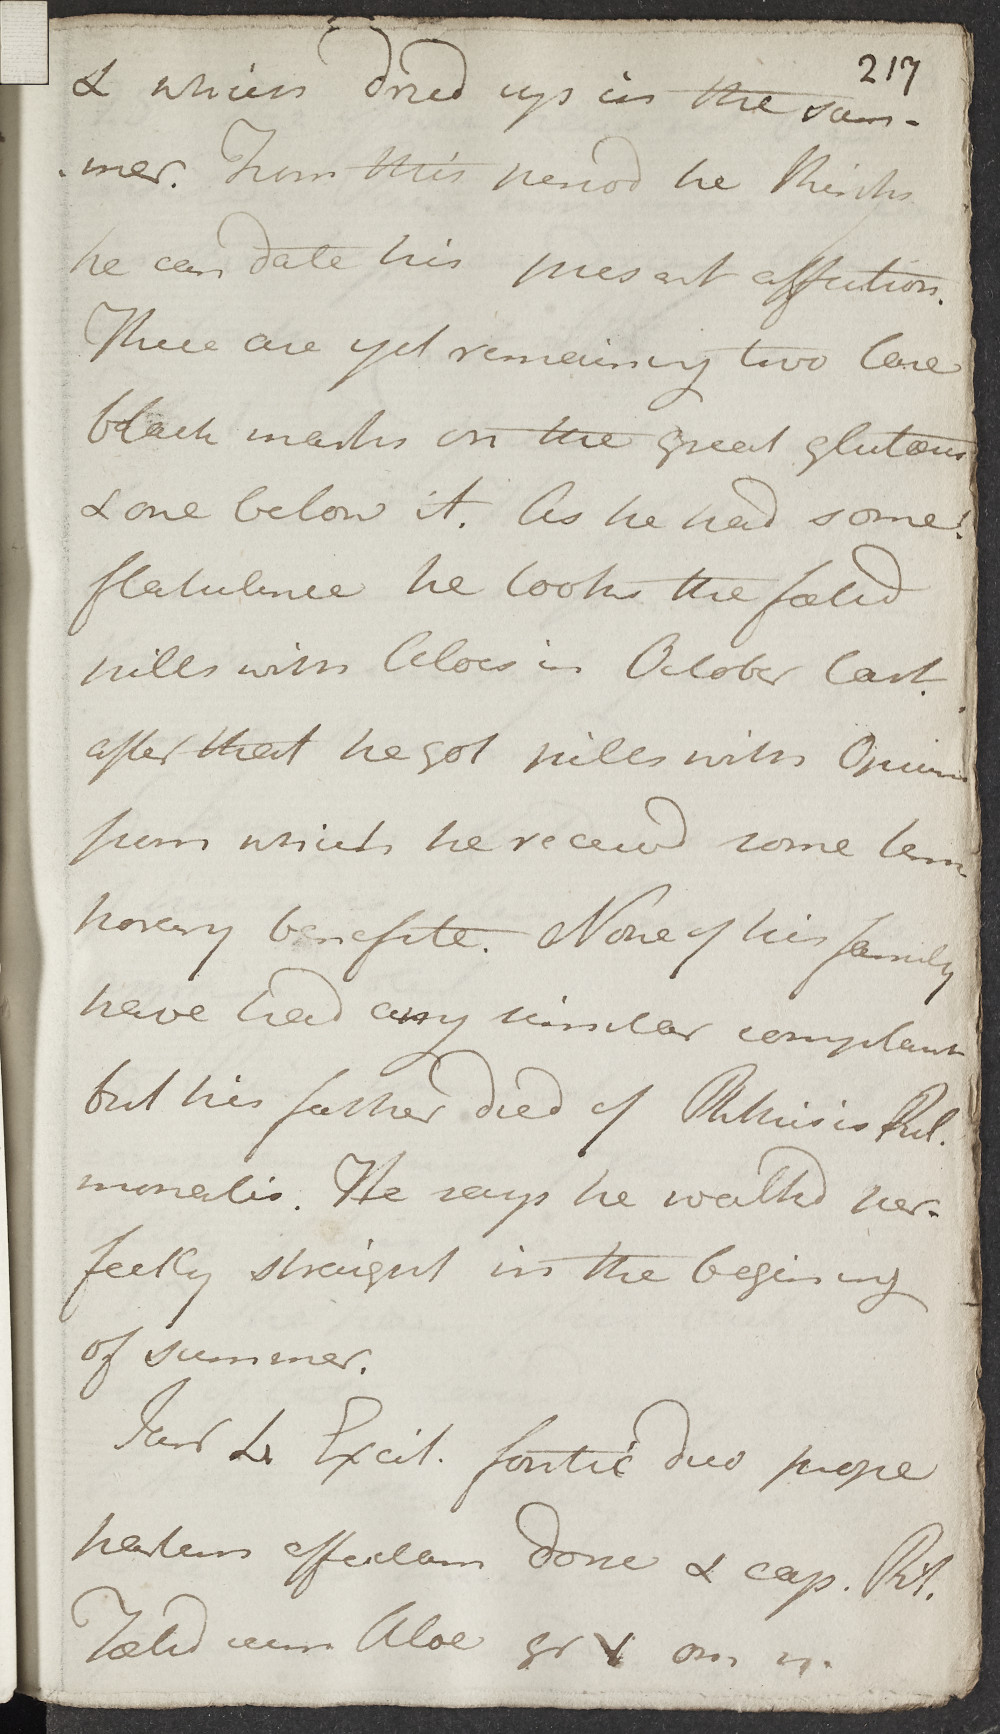 217
& which dried up in the sum-
-mer. From this period he thinks
he can date his present affection.
There are yet remaining two lare
black marks on the great glutæus
& one below it. As he had some
flatulence he tooks the fœtid
pills with Aloes in October last.
after that he got pills with Opium
from which he receivd some tem-
porary benefite. None of his family
have had any similar complaint
but his father died of Phthisis Pul.
monalis. He says he walkd per-
fectly straight in the begining
of summer.
Excit. fontic duo prope
partem affectam done & cap. Pil.
Fœtid cum Aloe gr om n.